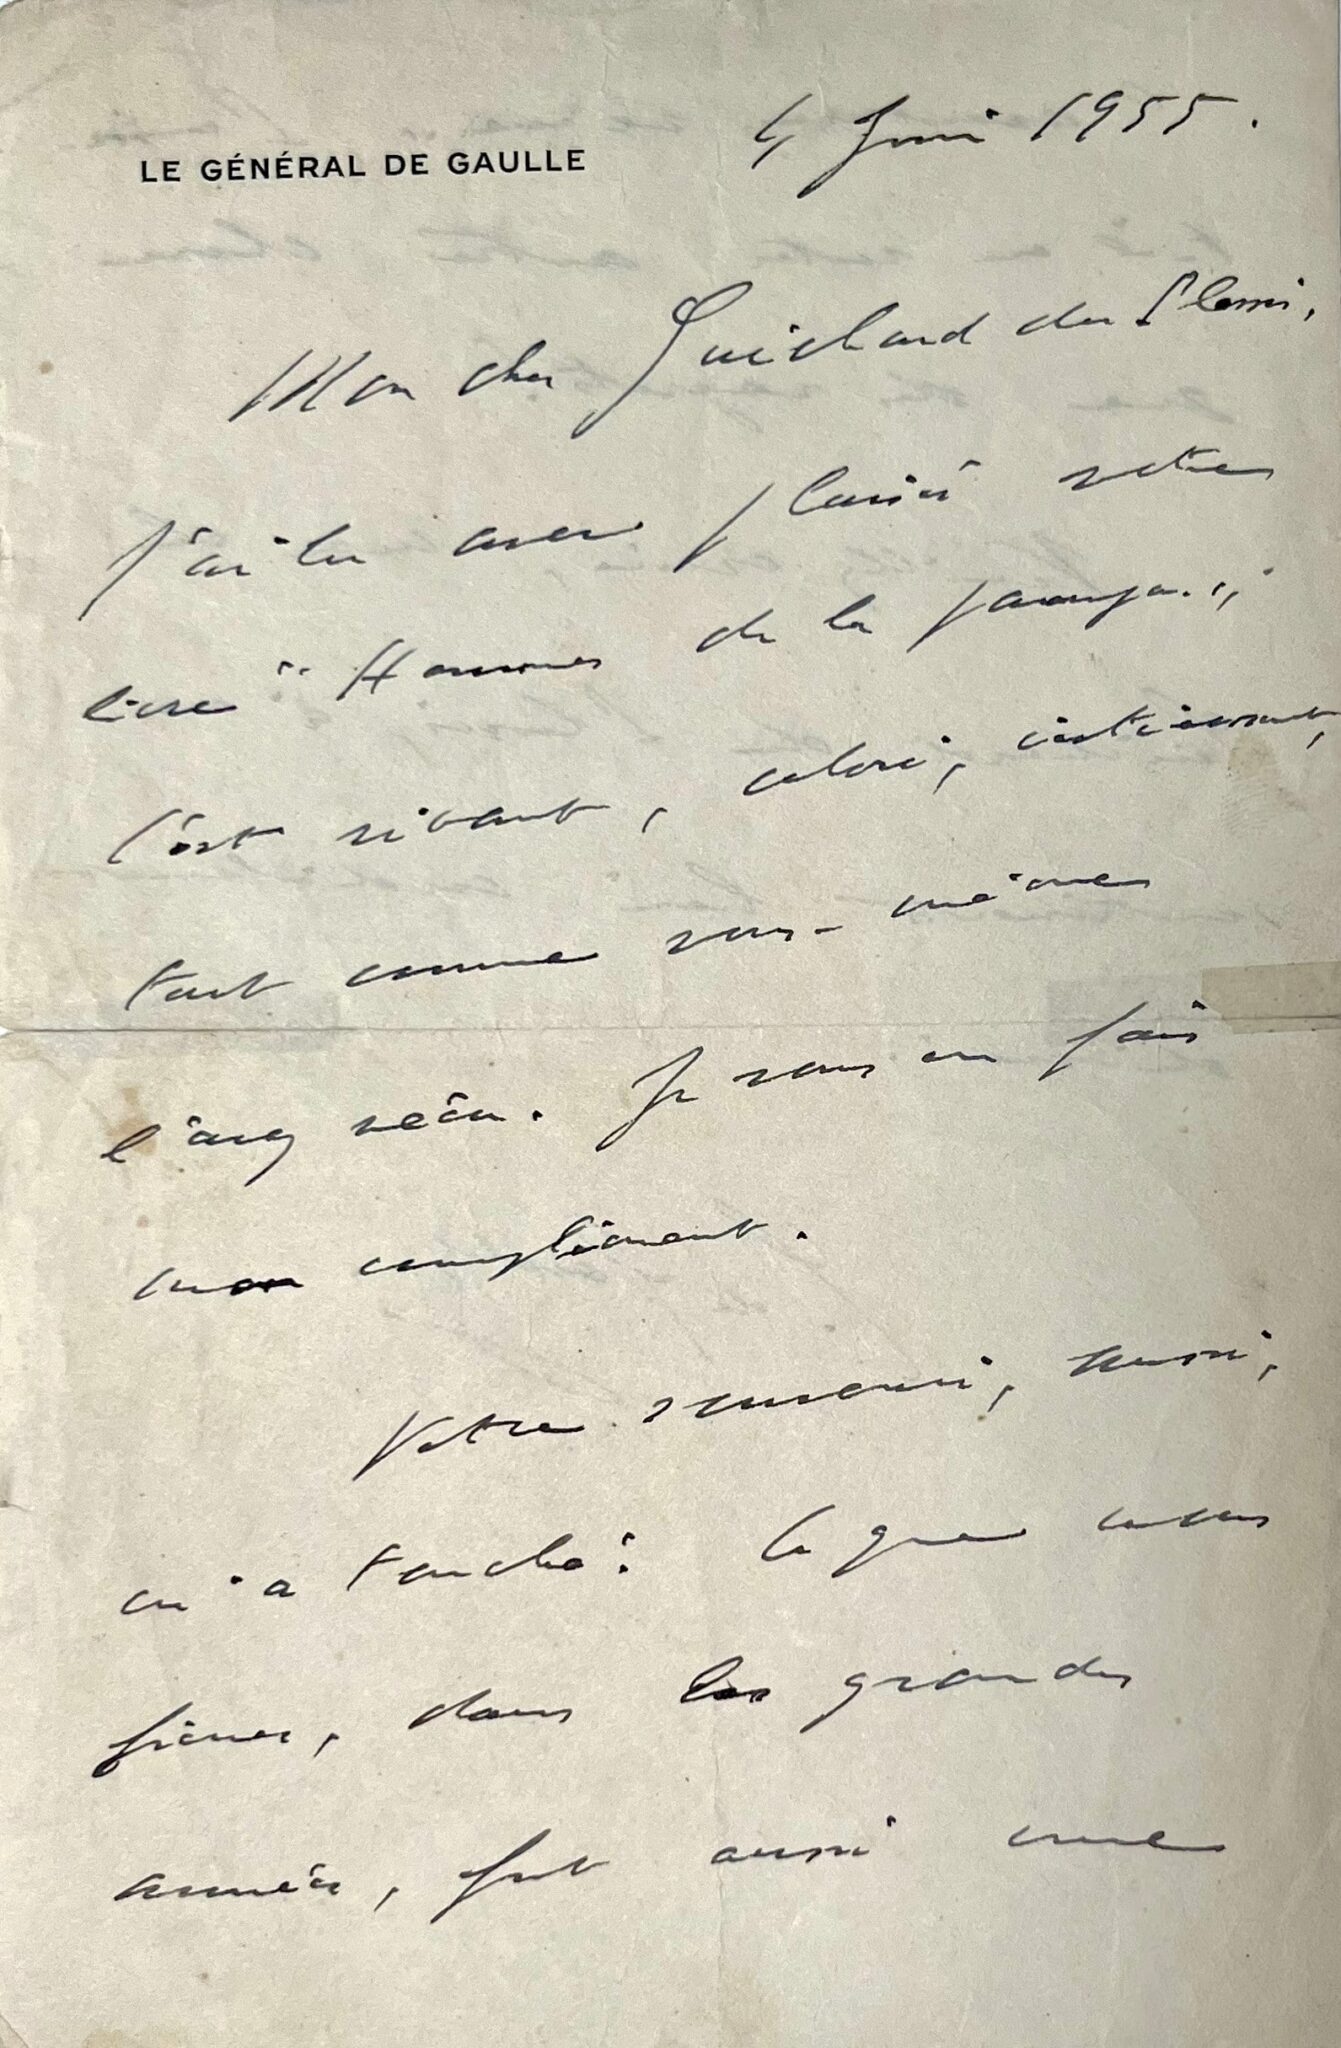 4 Juin 1955.
LE GÉNÉRAL DE GAULLE
Mon cher Guichard du Plessis,
J'ai lu avec plaisir votre
livre "Hommes de la
C'est vivant, coloré, intéressant,
tout comme vous-même
l'avez vécu. Je vous en fais
mon compliment.
Votre souvenir, aussi,
m'a touché. Ce que nous
fîmes, dans les grandes
années, fut aussi une